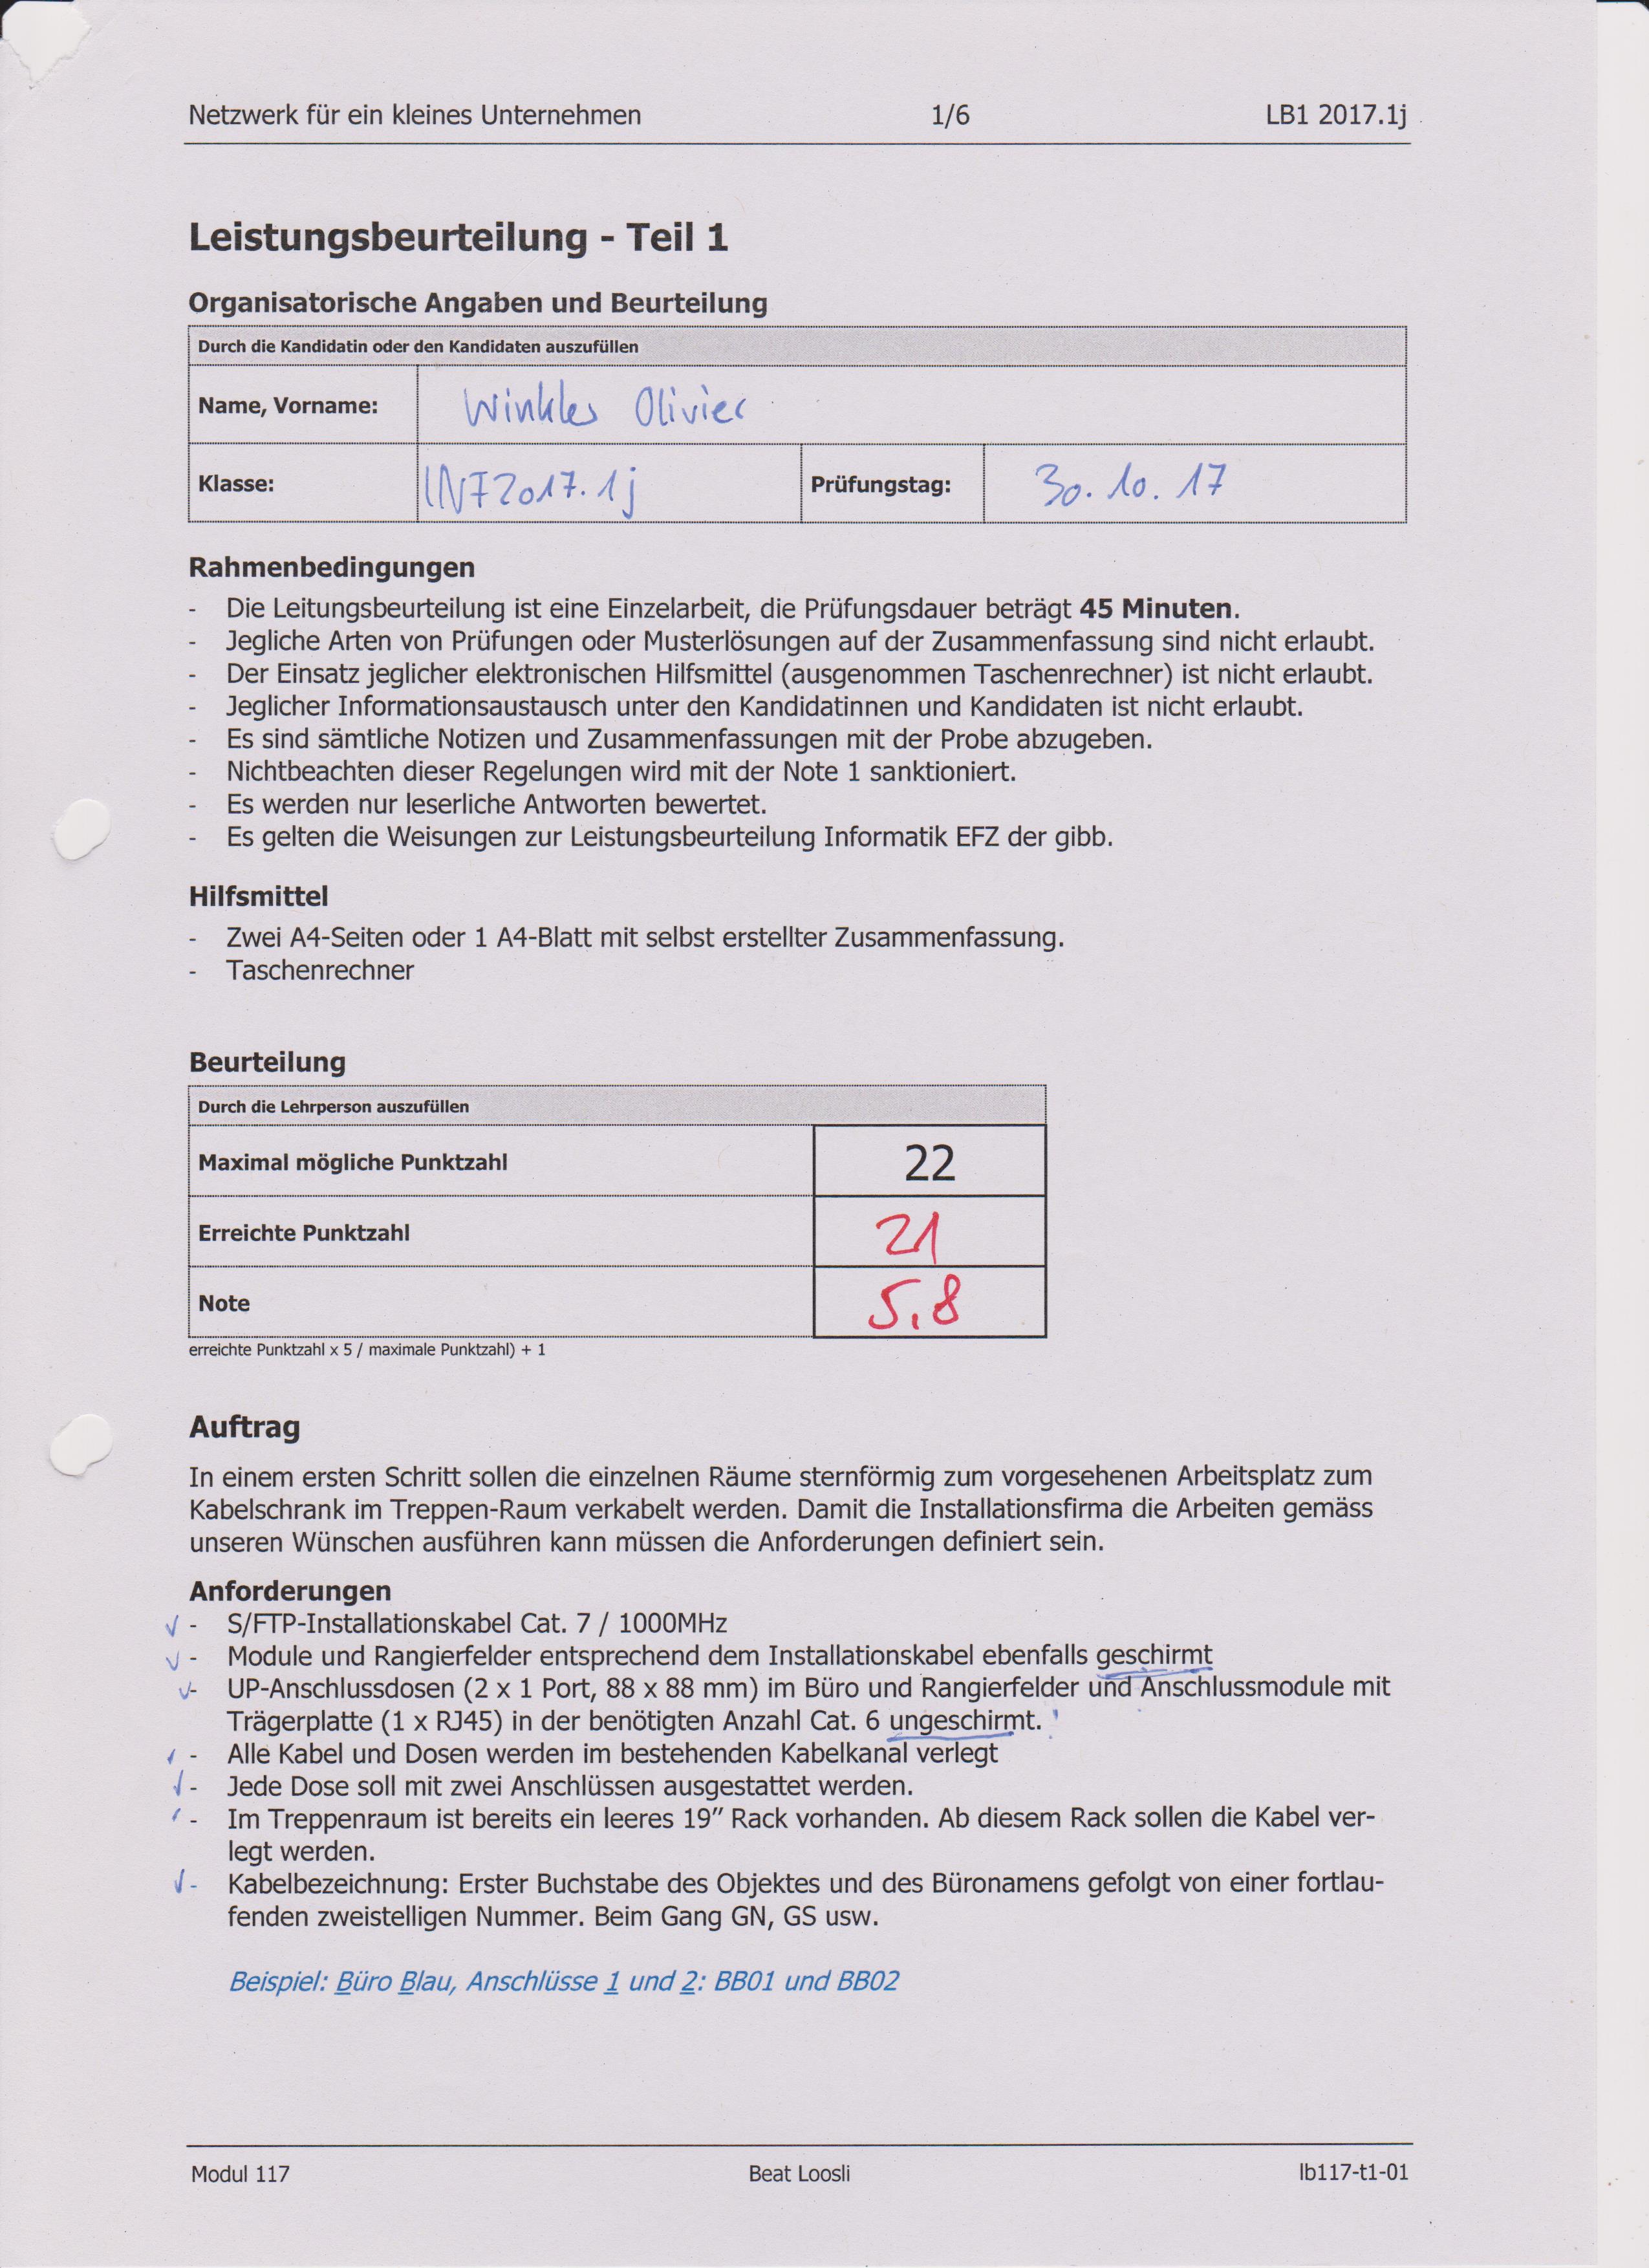 Netzwerk für ein kleines Unternehmen 1/6 LB1 2017.1j
Leistungsbeurteilung - Teil 1
Organisatorische Angaben und Beurteilung
Durch die Kandidatin oder den Kandidaten auszufüllen
Name, Vorname: Winkler Olivier
Klasse: INF2017.1j Prüfungstag: 30.10.17
Rahmenbedingungen
- Die Leitungsbeurteilung ist eine Einzelarbeit, die Prüfungsdauer beträgt 45 Minuten.
- Jegliche Arten von Prüfungen oder Musterlösungen auf der Zusammenfassung sind nicht erlaubt.
- Der Einsatz jeglicher elektronischen Hilfsmittel (ausgenommen Taschenrechner) ist nicht erlaubt.
- Jeglicher Informationsaustausch unter den Kandidatinnen und Kandidaten ist nicht erlaubt.
- Es sind sämtliche Notizen und Zusammenfassungen mit der Probe abzugeben.
- Nichtbeachten dieser Regelungen wird mit der Note 1 sanktioniert.
- Es werden nur leserliche Antworten bewertet.
- Es gelten die Weisungen zur Leistungsbeurteilung Informatik EFZ der gibb.
Hilfsmittel
- Zwei A4-Seiten oder 1 A4-Blatt mit selbst erstellter Zusammenfassung.
- Taschenrechner
Beurteilung
Durch die Lehrperson auszufüllen
Maximal mögliche Punktzahl 22
Erreichte Punktzahl 21
Note 5,8
erreichte Punktzahl x 5 / maximale Punktzahl) + 1
Auftrag
In einem ersten Schritt sollen die einzelnen Räume sternförmig zum vorgesehenen Arbeitsplatz zum
Kabelschrank im Treppen-Raum verkabelt werden. Damit die Installationsfirma die Arbeiten gemäss
unseren Wünschen ausführen kann müssen die Anforderungen definiert sein.
Anforderungen
- S/FTP-Installationskabel Cat. 7 / 1000MHz
- Module und Rangierfelder entsprechend dem Installationskabel ebenfalls geschirmt
- UP-Anschlussdosen (2 x 1 Port, 88 x 88 mm) im Büro und Rangierfelder und Anschlussmodule mit
Trägerplatte (1 x RJ45) in der benötigten Anzahl Cat. 6 ungeschirmt.
- Alle Kabel und Dosen werden im bestehenden Kabelkanal verlegt
- Jede Dose soll mit zwei Anschlüssen ausgestattet werden.
- Im Treppenraum ist bereits ein leeres 19″ Rack vorhanden. Ab diesem Rack sollen die Kabel ver-
legt werden.
- Kabelbezeichnung: Erster Buchstabe des Objektes und des Büronamens gefolgt von einer fortlau-
fenden zweistelligen Nummer. Beim Gang GN, GS usw.
Beispiel: Büro Blau, Anschlüsse 1 und 2: BB01 und BB02
Modul 117 Beat Loosli lb117-t1-01